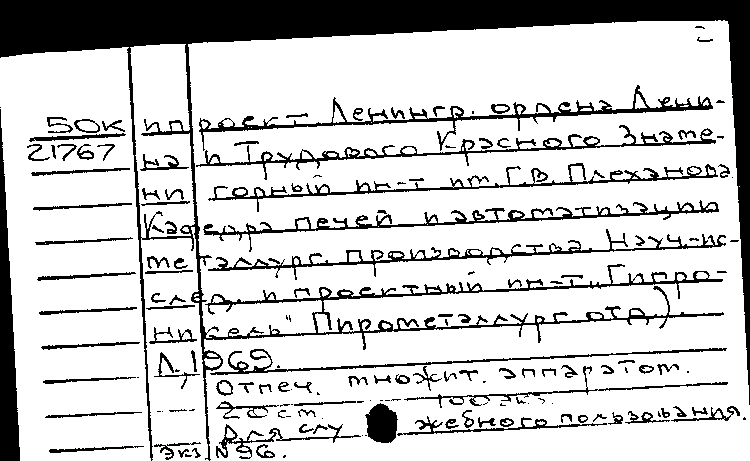 2
50К
21767
ппроект. Ленингр. ордена Лени-
на и Трудового Красного Знаме-
ни горный ин-т им. Г.В. Плеханова
Кафедра печей и автоматизации
металлург. производства. Науч.-ис-
след. и проектный ин-т „Гипро-
никель" Пирометаллург. отд.).
Л., 1969.
Отпеч. множит. аппаратом.
20 ст. 100 экз.
Для слу жебного пользования.
Экз. №96.